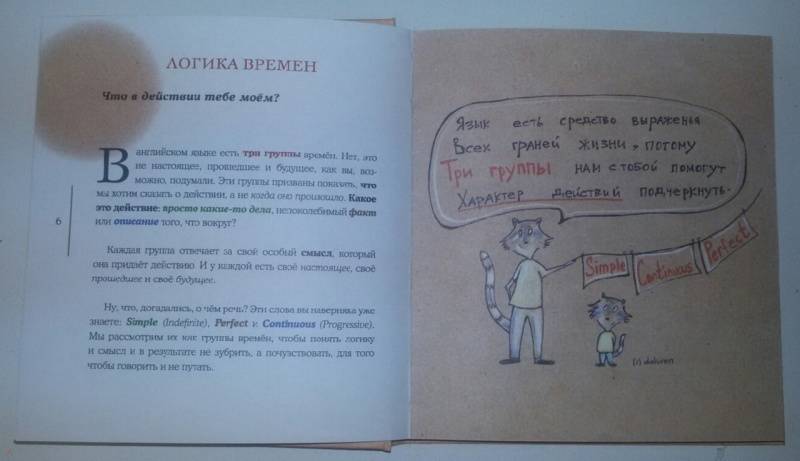 ЛОГИКА ВРЕМЕН
Что в действии тебе моём?
В английском языке есть три группы времён. Нет, это
не настоящее, прошедшее и будущее, как вы, воз-
можно, подумали. Эти группы призваны показать, что
мы хотим сказать о действии, а не когда оно произошло. Какое
это действие: просто какие-то дела, непоколебимый факт
или описание того, что вокруг?
6
Каждая группа отвечает за свой особый смысл, который
она придаёт действию. И у каждой есть своё настоящее, своё
прошедшее и своё будущее.
Ну, что, догадались, о чём речь? Эти слова вы наверняка уже
знаете: Simple (Indefinite), Perfect и Continuous (Progressive).
Мы рассмотрим их как группы времён, чтобы понять логику
и смысл и в результате не зубрить, а почувствовать, для того
чтобы говорить и не путать.
Язык есть средство выраженья
Всех граней жизни, потому
Три группы нам с тобой помогут
Характер действий подчеркнуть.
Simple
Continuous
Perfect